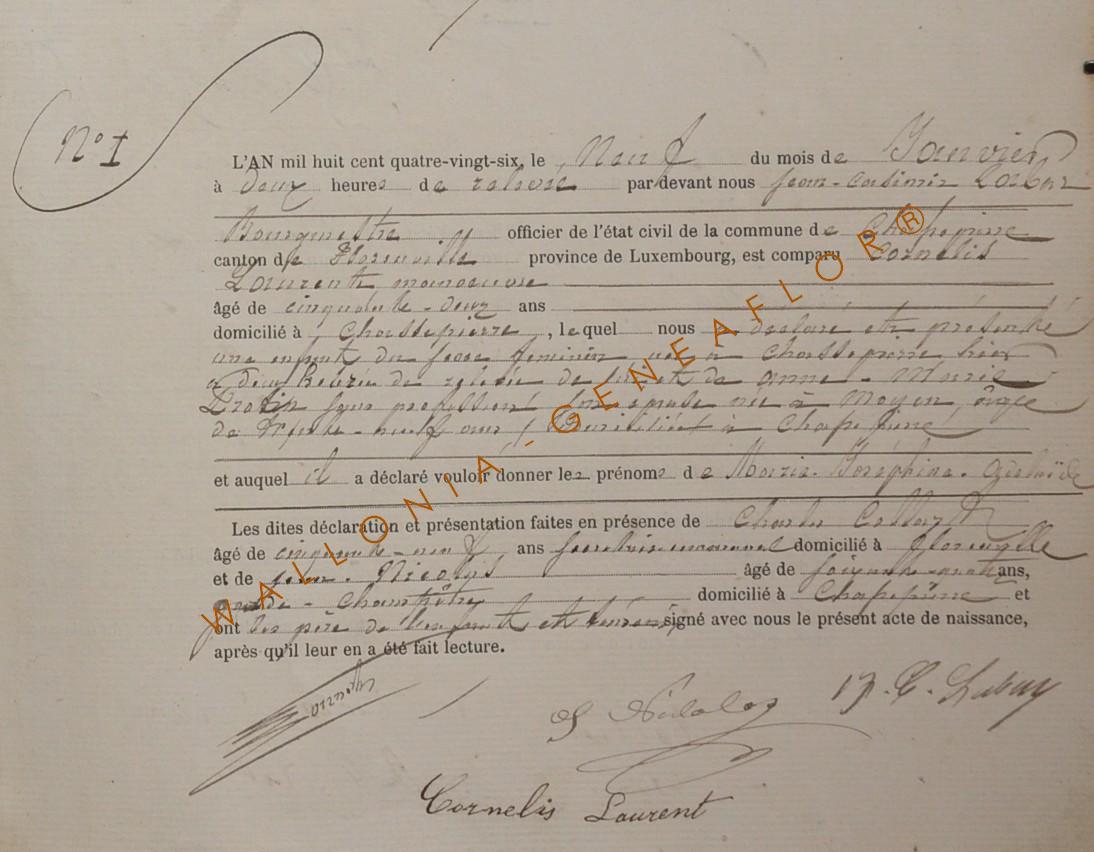 N° 1
L'AN mil huit cent quatre-vingt-six, le Neuf du mois de Janvier
à deux heures de relevée par devant nous Jean-Casimir
Bourgmestre officier de l'état civil de la commune de Chassepierre
canton de Florenville province de Luxembourg, est comparu Cornelis
Laurent manoeuvre
âgé de cinquante-deux ans
domicilié à Chassepierre, lequel nous a déclaré et présenté
une enfant du sexe féminin née à Chassepierre hier
à heures de relevée de lui et de Anne-Marie
sans profession son épouse née à Moyen âgée
de trente-neuf ans domiciliée à Chassepierre
et auquel il a déclaré vouloir donner les prénoms de Marie-Joséphine-Adelaïde
Les dites déclaration et présentation faites en présence de Charles
âgé de cinquante-neuf ans secrétaire communal domicilié à Florenville
et de Jean-Nicolas âgé de soixante-quatre ans,
garde-champêtre domicilié à Chassepierre et
ont les père de l'enfant et témoins signé avec nous le présent acte de naissance,
après qu'il leur en a été fait lecture.
Cornelis Laurent
WALLONIA-GENEAFLOR®